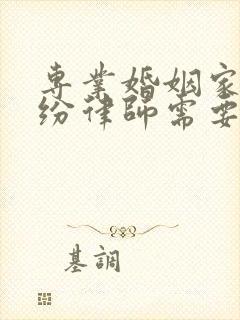 專業婚姻家
紛律師需要
基調